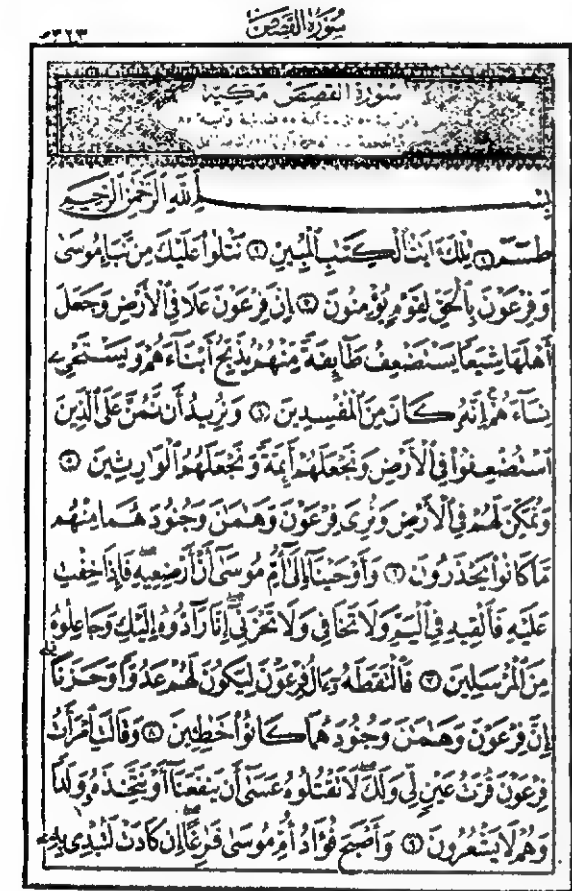 سُورَةُ الْقَصَصِ
٣٢٣
سُورَةُ الْقَصَصِ مَكِّيَّة
بِسْمِ اللَّهِ الرَّحْمَٰنِ الرَّحِيمِ
طسٓمٓ ١ تِلْكَ ءَايَٰتُ ٱلْكِتَٰبِ ٱلْمُبِينِ ٢ نَتْلُوا۟ عَلَيْكَ مِن نَّبَإِ مُوسَىٰ
وَفِرْعَوْنَ بِٱلْحَقِّ لِقَوْمٍ يُؤْمِنُونَ ٣ إِنَّ فِرْعَوْنَ عَلَا فِى ٱلْأَرْضِ وَجَعَلَ
أَهْلَهَا شِيَعًا يَسْتَضْعِفُ طَآئِفَةً مِّنْهُمْ يُذَبِّحُ أَبْنَآءَهُمْ وَيَسْتَحْىِۦ
نِسَآءَهُمْ إِنَّهُۥ كَانَ مِنَ ٱلْمُفْسِدِينَ ٤ وَنُرِيدُ أَن نَّمُنَّ عَلَى ٱلَّذِينَ
ٱسْتُضْعِفُوا۟ فِى ٱلْأَرْضِ وَنَجْعَلَهُمْ أَئِمَّةً وَنَجْعَلَهُمُ ٱلْوَٰرِثِينَ ٥
وَنُمَكِّنَ لَهُمْ فِى ٱلْأَرْضِ وَنُرِىَ فِرْعَوْنَ وَهَٰمَٰنَ وَجُنُودَهُمَا مِنْهُم
مَّا كَانُوا۟ يَحْذَرُونَ ٦ وَأَوْحَيْنَآ إِلَىٰٓ أُمِّ مُوسَىٰٓ أَنْ أَرْضِعِيهِ فَإِذَا خِفْتِ
عَلَيْهِ فَأَلْقِيهِ فِى ٱلْيَمِّ وَلَا تَخَافِى وَلَا تَحْزَنِىٓ إِنَّا رَآدُّوهُ إِلَيْكِ وَجَاعِلُوهُ
مِنَ ٱلْمُرْسَلِينَ ٧ فَٱلْتَقَطَهُۥٓ ءَالُ فِرْعَوْنَ لِيَكُونَ لَهُمْ عَدُوًّا وَحَزَنًا
إِنَّ فِرْعَوْنَ وَهَٰمَٰنَ وَجُنُودَهُمَا كَانُوا۟ خَٰطِـِٔينَ ٨ وَقَالَتِ ٱمْرَأَتُ
فِرْعَوْنَ قُرَّتُ عَيْنٍ لِّى وَلَكَ لَا تَقْتُلُوهُ عَسَىٰٓ أَن يَنفَعَنَآ أَوْ نَتَّخِذَهُۥ وَلَدًا
وَهُمْ لَا يَشْعُرُونَ ٩ وَأَصْبَحَ فُؤَادُ أُمِّ مُوسَىٰ فَٰرِغًا إِن كَادَتْ لَتُبْدِى بِهِۦ